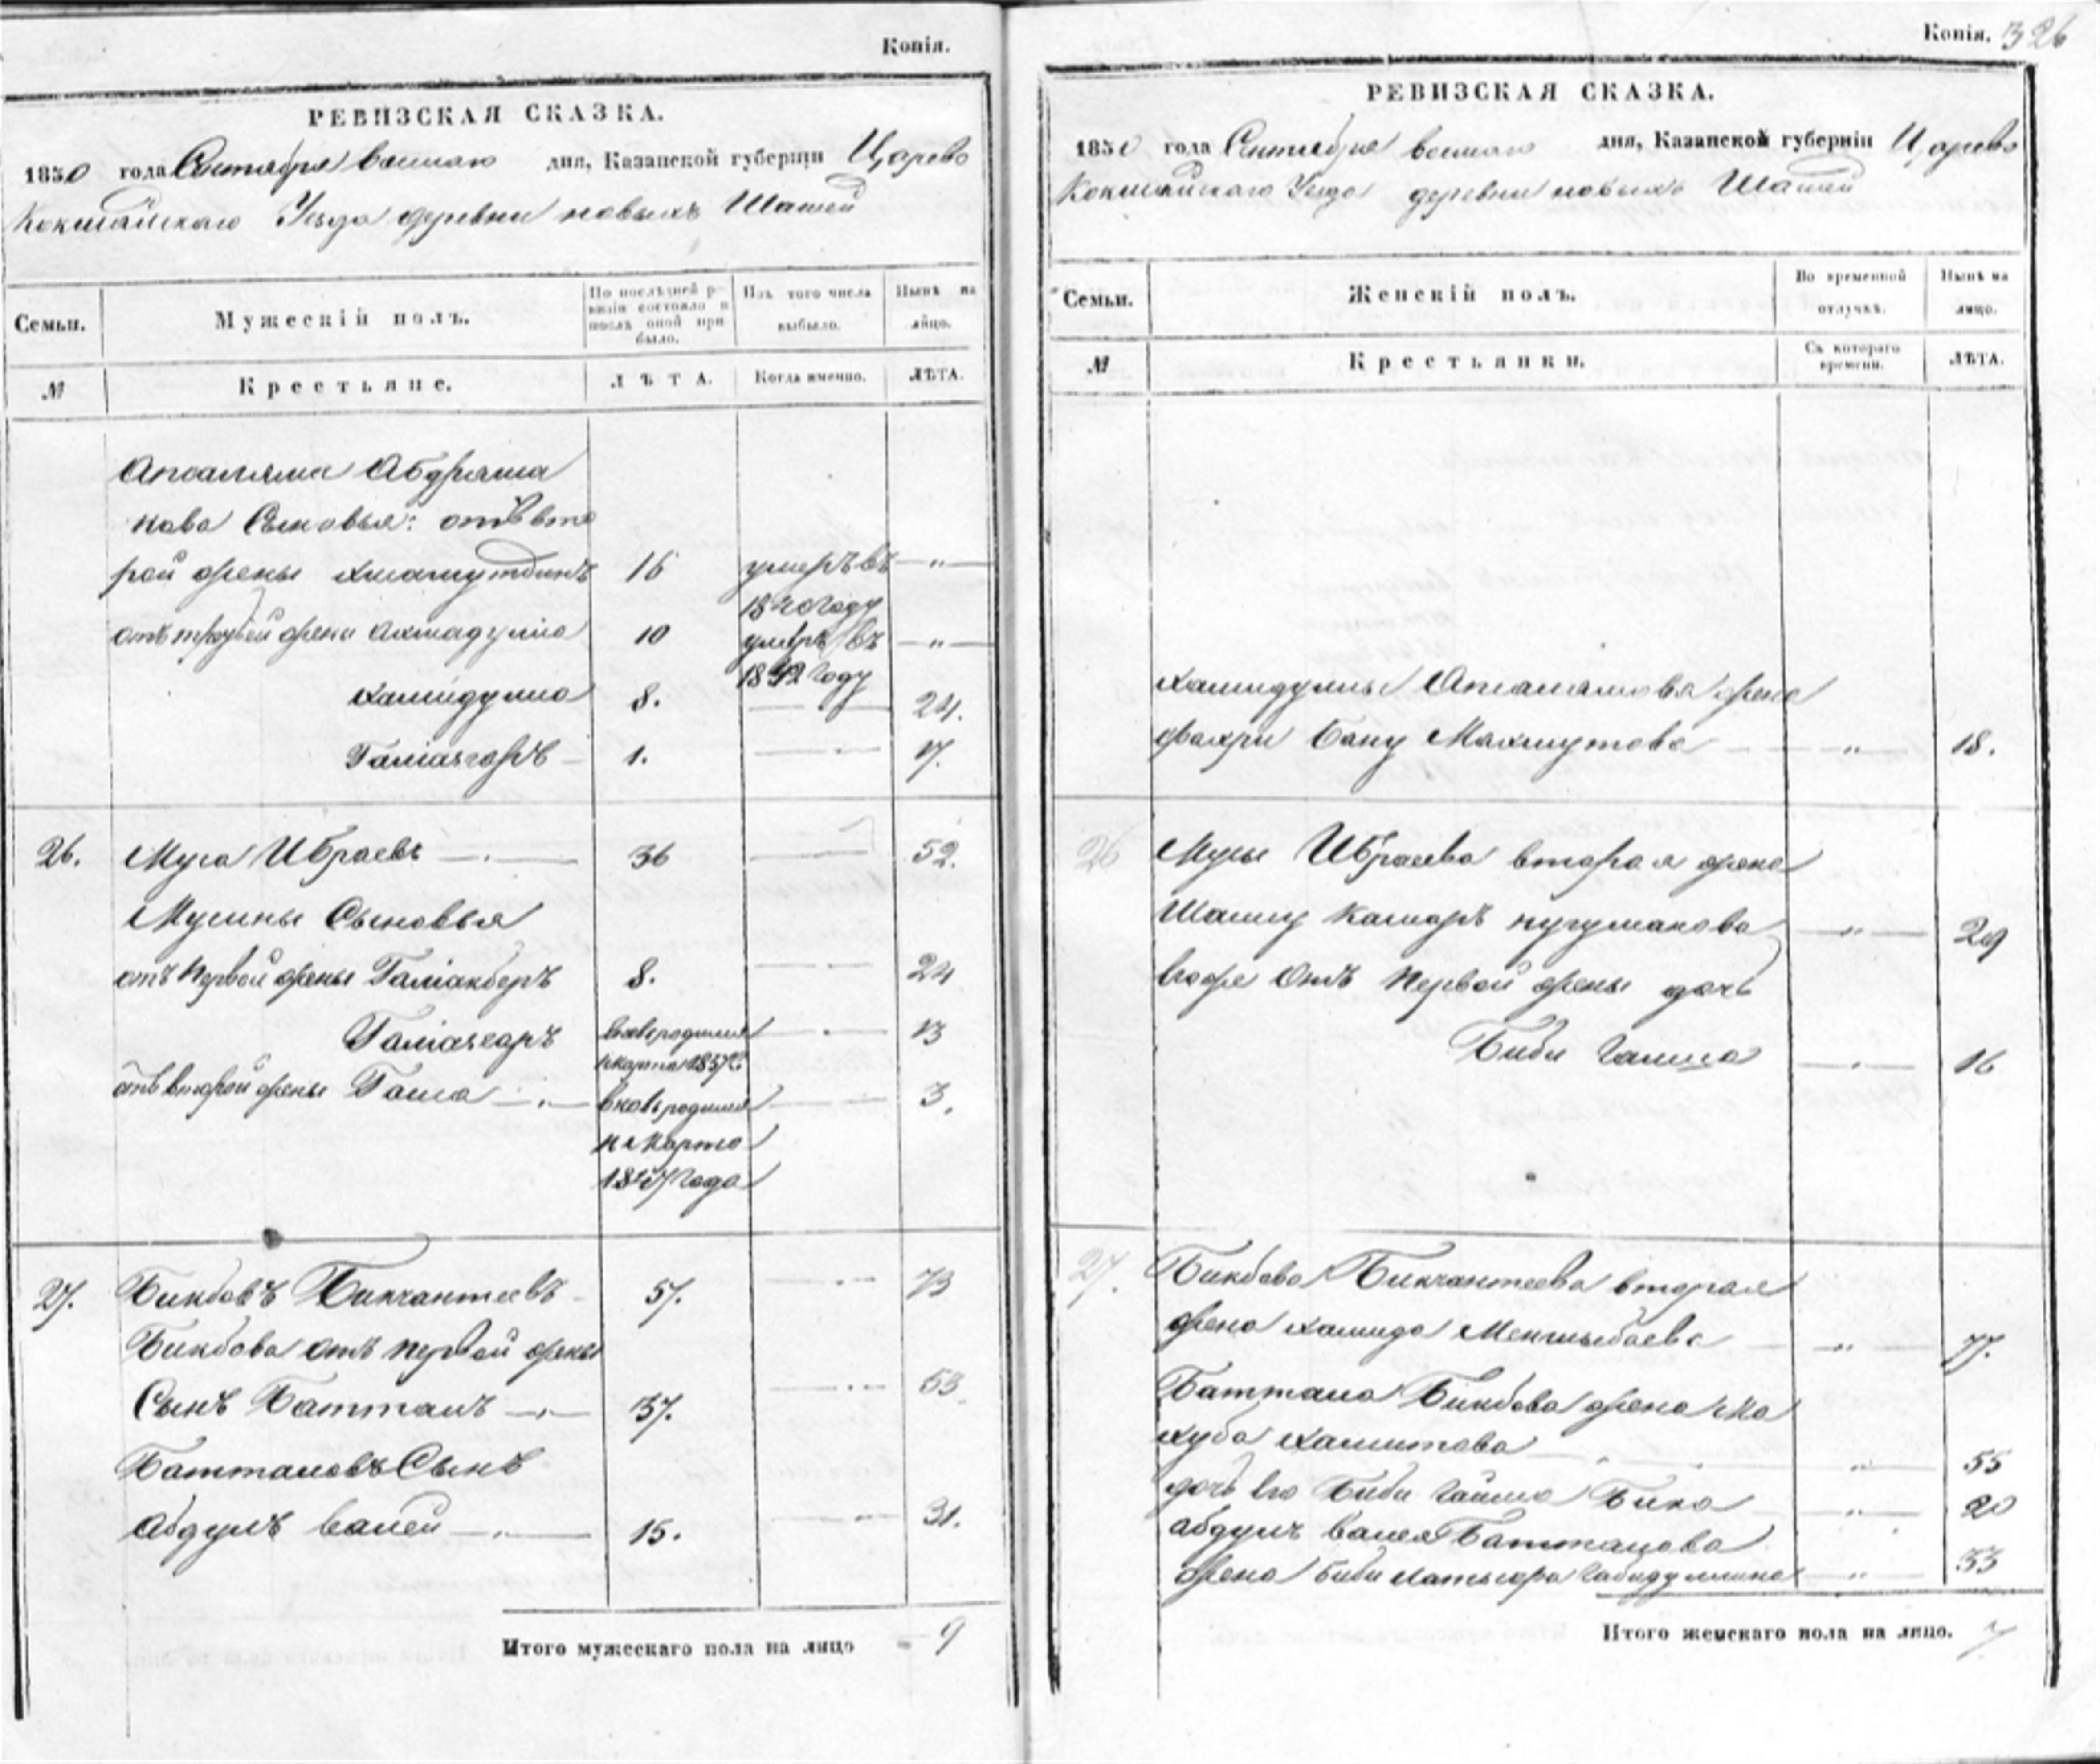 Копія.
РЕВИЗСКАЯ СКАЗКА.
1850 года Сентября восмаго дня, Казанской губерніи Царево
Кокшайскаго Уезда деревни новыхъ Шашей
Семьи. Мужескій полъ. По послѣдней ревизіи состояло и послѣ оной прибыло. Изъ того числа выбыло. Нынѣ на лицо.
№ Крестьяне. ЛѢТА. Когда именно. ЛѢТА.
Апсаляма Абдряши
кова Сыновья: отъ вто
рой жены 16 умеръ въ — „ —
1840 году
отъ третьей жены Ахмадулла 10 умеръ въ — „ —
1842 году
Хамидулла 8. 24.
Галіаскаръ 1. 17.
26. Муса Ибраевъ 36 52.
Мусины Сыновья
отъ первой жены Галіакберъ 8. 24
Галіаскаръ вновьродился 13
отъ второй жены вновьродился 3.
Марта
года
27. Бикбовъ Бикчантеевъ 57. 73
Бикбова отъ первой жены
Сынъ Батталъ 37. 53
Батталовъ Сынъ
Абдулъ Валей 15. 31.
Итого мужескаго пола на лицо 9
Копія. 326
РЕВИЗСКАЯ СКАЗКА.
1850 года Сентября восмаго дня, Казанской губерніи Царево
Кокшайскаго Уезда деревни новыхъ Шашей
Семьи. Женскій полъ. Во временной отлучкѣ. Нынѣ на лицо.
№ Крестьянки. Съ котораго времени. ЛѢТА.
Хамидуллы Апсалямова жена
Фахри Бану Махмутова — „ — 18.
26 Мусы Ибраева вторая жена
Шамсу Камаръ — „ — 29
Евоже отъ первой жены дочь
Биби 16
27. Бикбова Бикчантеева вторая
жена Хамида — „ — 77.
Баттала Бикбова жена Ма
хуба Хамитова — „ — 55
дочь Его Биби Бика — „ — 20
Абдулъ Валея Батталова
жена Биби Габидуллина — „ — 33
Итого женскаго пола на лицо. 7